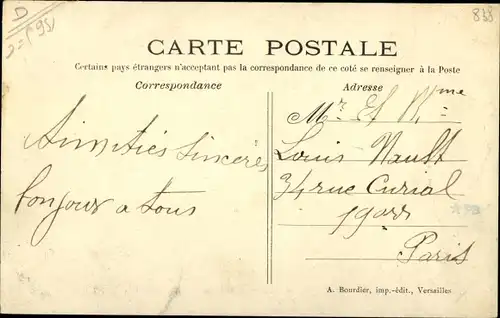 838
CARTE POSTALE
Certains pays étrangers n'acceptant pas la correspondance de ce coté se renseigner à la Poste
Correspondance
Adresse
Amitiés Sincères
bonjour a tous
Mr Et Mme
Louis Nault
34 rue Curial
19arr
Paris
A. Bourdier, imp.-édit., Versailles